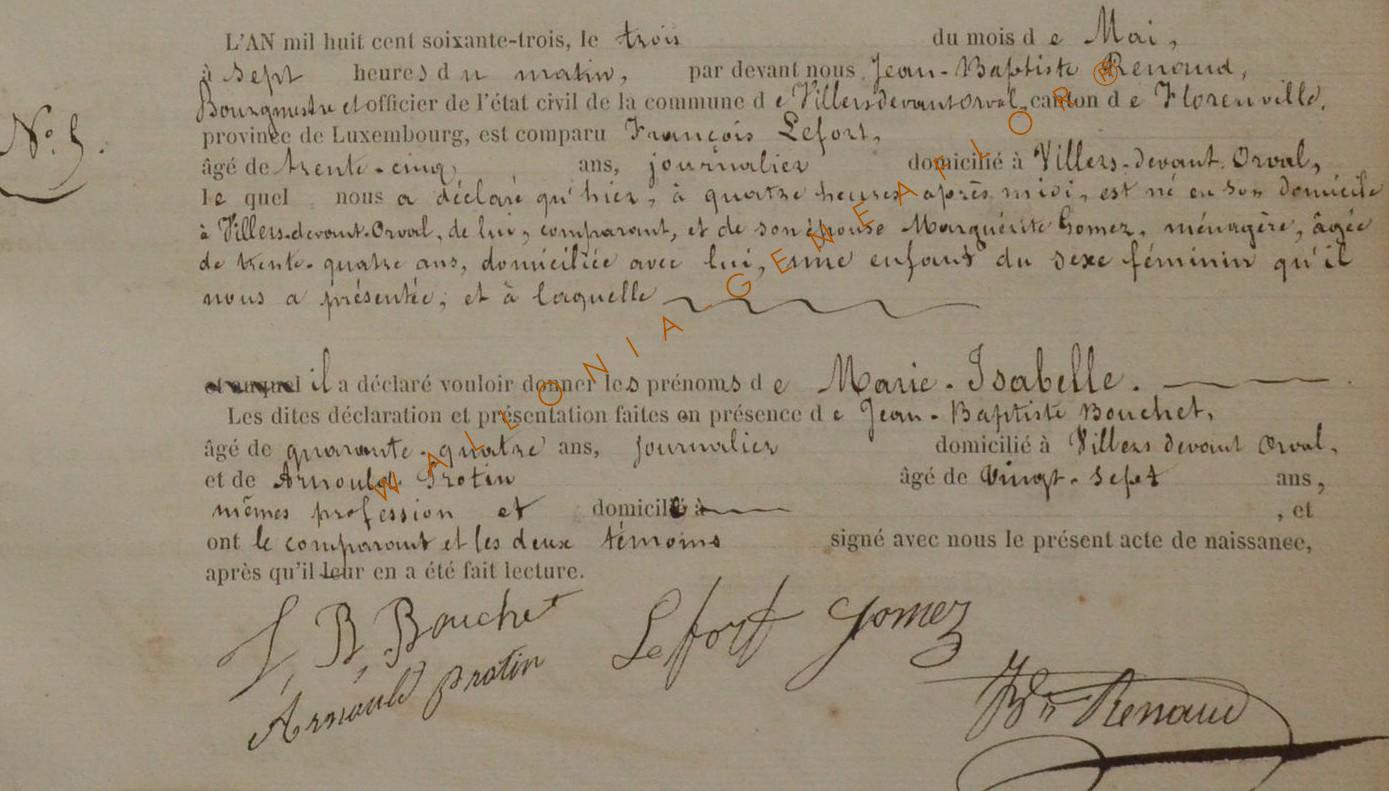 L'AN mil huit cent soixante-trois, le trois du mois de Mai,
à sept heures du matin, par devant nous Jean-Baptiste Renaud,
Bourgmestre et officier de l'état civil de la commune de Villersdevantorval, canton de Florenville,
N° 5.
province de Luxembourg, est comparu François Lefort,
âgé de trente-cinq ans, journalier domicilié à Villers-devant-Orval,
lequel nous a déclaré qu'hier, à quatre heures après midi, est né en son domicile
à Villers-devant-Orval, de lui, comparant, et de son épouse Marguérite Gomez, ménagère, âgée
de trente-quatre ans, domiciliée avec lui, une enfant du sexe féminin qu'il
nous a présentée, et à laquelle
et auquel il a déclaré vouloir donner les prénoms de Marie-Isabelle.
Les dites déclaration et présentation faites en présence de Jean-Baptiste Bouchet,
âgé de quarante-quatre ans, journalier domicilié à Villers devant Orval,
et de Arnould Protin âgé de vingt-sept ans,
mêmes profession et domicile à , et
ont le comparant et les deux témoins signé avec nous le présent acte de naissance,
après qu'il leur en a été fait lecture.
J, B, Bouchet Lefort Gomez
Arnould protin
JBte Renaud
WALLONIA GENEAFLOR®